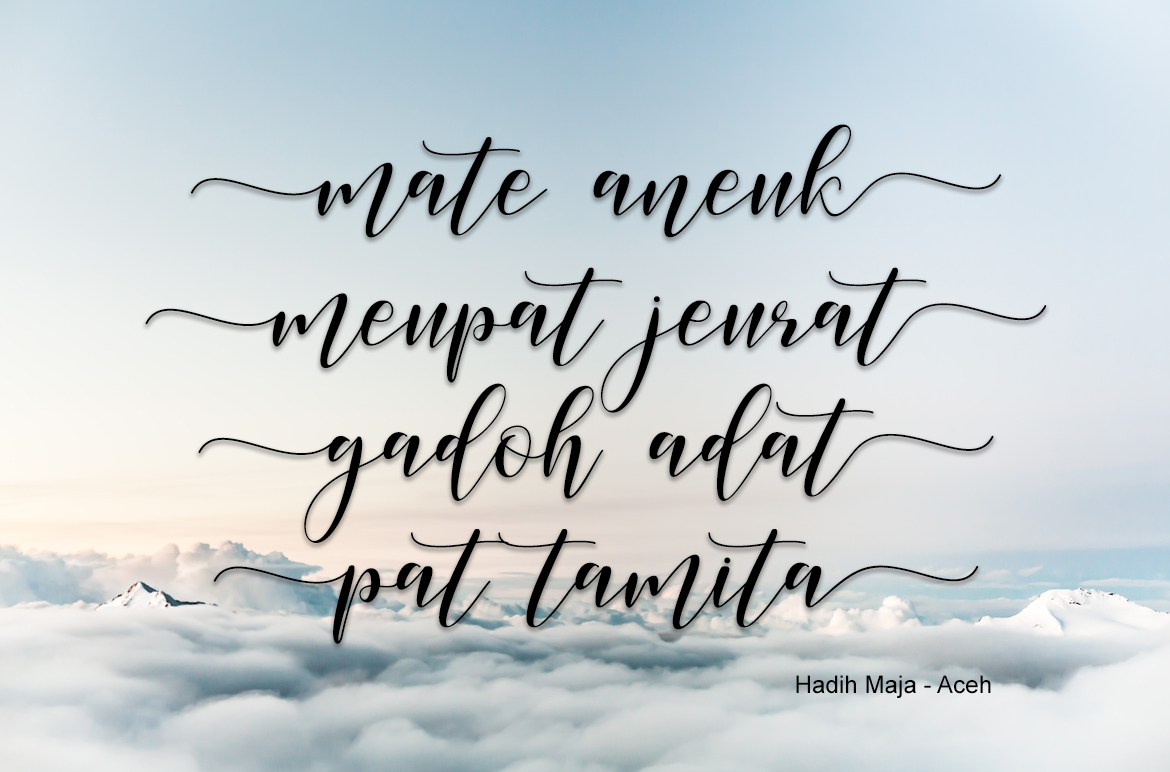 mate aneuk
meupat jeurat
gadoh adat
pat tamita
Hadih Maja - Aceh